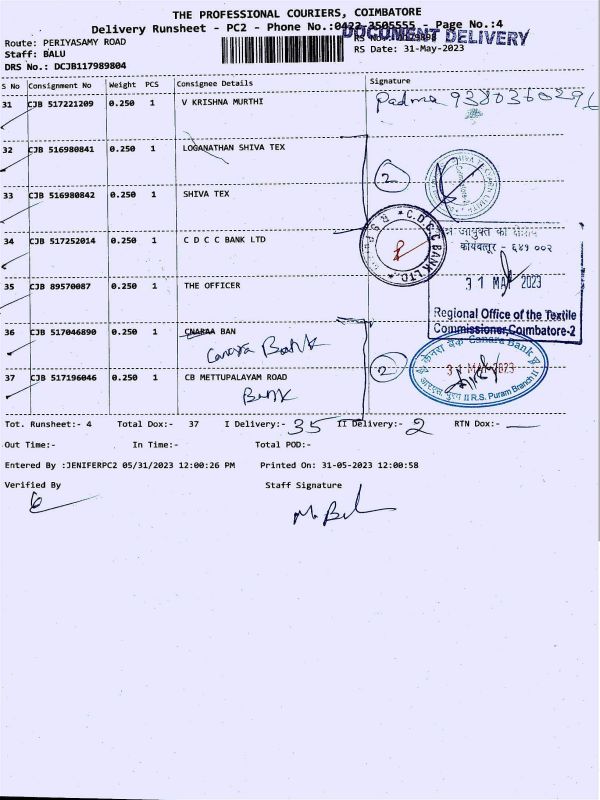 THE PROFESSIONAL COURIERS, COIMBATORE
Delivery Runsheet - PC2 - Phone No.:0422-3505555 - Page No.:4
DOCUMENT DELIVERY
Route: PERIYASAMY ROAD
Staff: BALU
RS Date: 31-May-2023
DRS No.: DCJB117989804
S No Consignment No Weight PCS Consignee Details Signature
31 CJB 517221209 0.250 1 V KRISHNA MURTHI
Padma 9380360296
32 CJB 516980841 0.250 1 LOGANATHAN SHIVA TEX
2
33 CJB 516980842 0.250 1 SHIVA TEX
34 CJB 517252014 0.250 1 C D C C BANK LTD
C.D.C.C. BANK LTD.
कोयंबत्तूर - ६४१ ००२
35 CJB 89570087 0.250 1 THE OFFICER
31 MAY 2023
Regional Office of the Textile
Commissioner,Coimbatore-2
36 CJB 517046890 0.250 1 CNARAA BAN
Canara Bank
केनरा बैंक Canara Bank
37 CJB 517196046 0.250 1 CB METTUPALAYAM ROAD
Bank
2
31 MAY 2023
II R.S. Puram Branch II
Tot. Runsheet:- 4 Total Dox:- 37 I Delivery:- 35 II Delivery:- 2 RTN Dox:-
Out Time:- In Time:- Total POD:-
Entered By :JENIFERPC2 05/31/2023 12:00:26 PM Printed On: 31-05-2023 12:00:58
Verified By Staff Signature